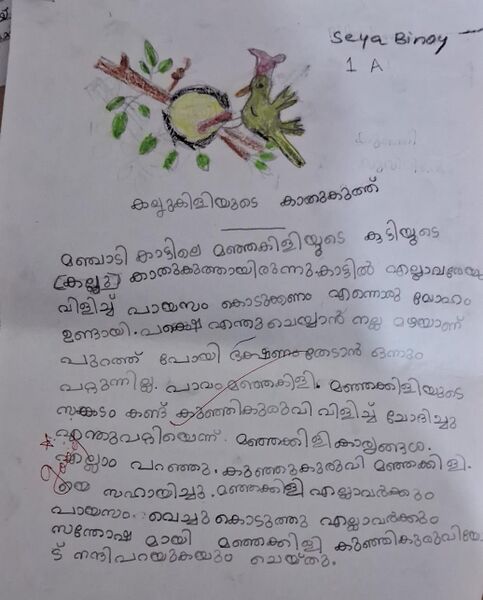 Seya Binoy
1 A
കല്ലുകിളിയുടെ കാതുകുത്ത്
മഞ്ചാടി കാട്ടിലെ മഞ്ഞകിളിയുടെ കുടിയുടെ
(കല്ലു) കാതുകുത്തായിരുന്നു. കാട്ടിൽ എല്ലാവരേയും
വിളിച്ച് പായസം കൊടുക്കണം എന്നൊരു മോഹം
ഉണ്ടായി. പക്ഷെ എന്തു ചെയ്യാൻ നല്ല മഴയാണ്
പുറത്ത് പോയി ഭക്ഷണം തേടാൻ ഒന്നും
പറ്റുന്നില്ല. പാവം മഞ്ഞകിളി. മഞ്ഞക്കിളിയുടെ
സങ്കടം കണ്ട് കുഞ്ഞികുരുവി വിളിച്ച് ചോദിച്ചു
എന്തുപറ്റിയെന്ന്. മഞ്ഞക്കിളി കാര്യങ്ങൾ.
എല്ലാം പറഞ്ഞു. കുഞ്ഞുകുരുവി മഞ്ഞക്കിളി.
യെ സഹായിച്ചു. മഞ്ഞക്കിളി എല്ലാവർക്കും
പായസം വെച്ചു കൊടുത്തു എല്ലാവർക്കും
സന്തോഷ മായി മഞ്ഞക്കിളി കുഞ്ഞികുരുവിയോ
ട് നന്ദിപറയുകയും ചെയ്തു.